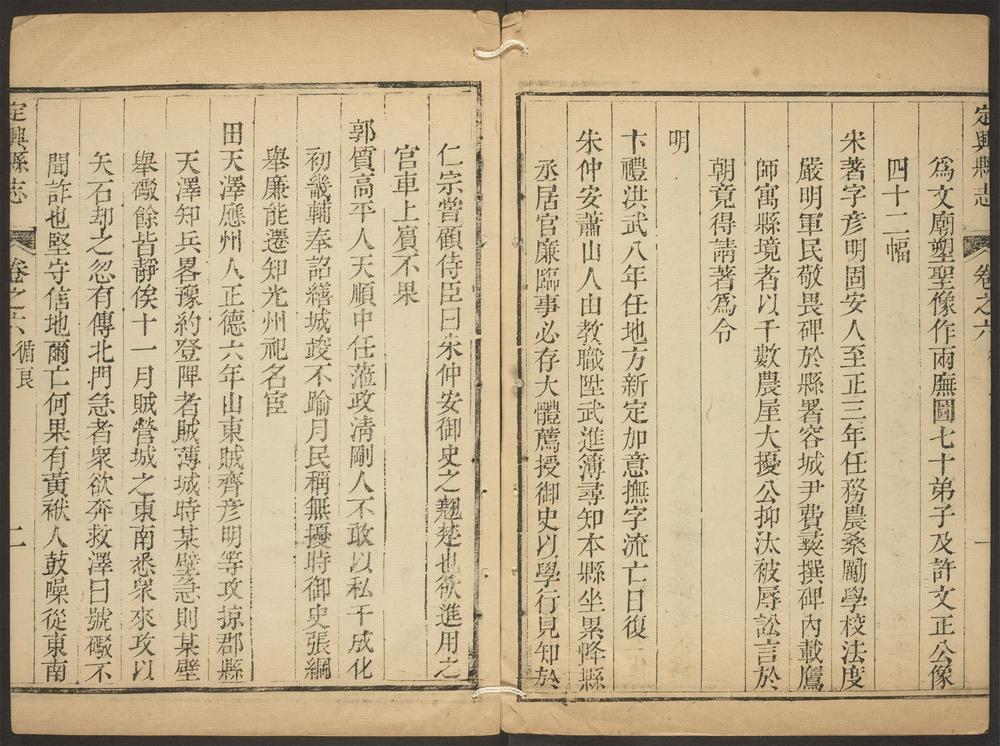 定興縣志 卷之六
為文廟塑聖像作兩廡圖七十弟子及許文正公像
四十二幅
宋著字彥明固安人至正三年任務農桑勵學校法度
嚴明軍民敬畏碑於縣署容城尹費撰碑內載鷹
師寓縣境者以千數農屋大擾公抑汰被辱訟言於
朝竟得請著為令
明
卞禮洪武八年任地方新定加意撫字流亡日復
朱仲安蕭山人由教職陞武進簿尋知本縣坐累降縣
丞居官廉臨事必存大體薦授御史以學行見知於
仁宗嘗顧侍臣曰朱仲安御史之翹楚也欲進用之
宮車上賓不果
郭質高平人天順中任蒞政清剛人不敢以私干成化
初畿輔奉詔繕城竣不踰月民稱無擾時御史張綱
舉廉能遷知光州祀名宦
田天澤應州人正德六年山東賊齊彥明等攻掠郡縣
天澤知兵畧豫約登陴者賊薄城時某壁急則某壁
舉礮餘皆靜俟十一月賊營城之東南悉衆來攻以
矢石却之忽有傳北門急者衆欲奔救澤曰號礮不
聞詐也堅守信地爾亡何果有黃袱人鼓噪從東南
定興縣志 卷之六 循良 二